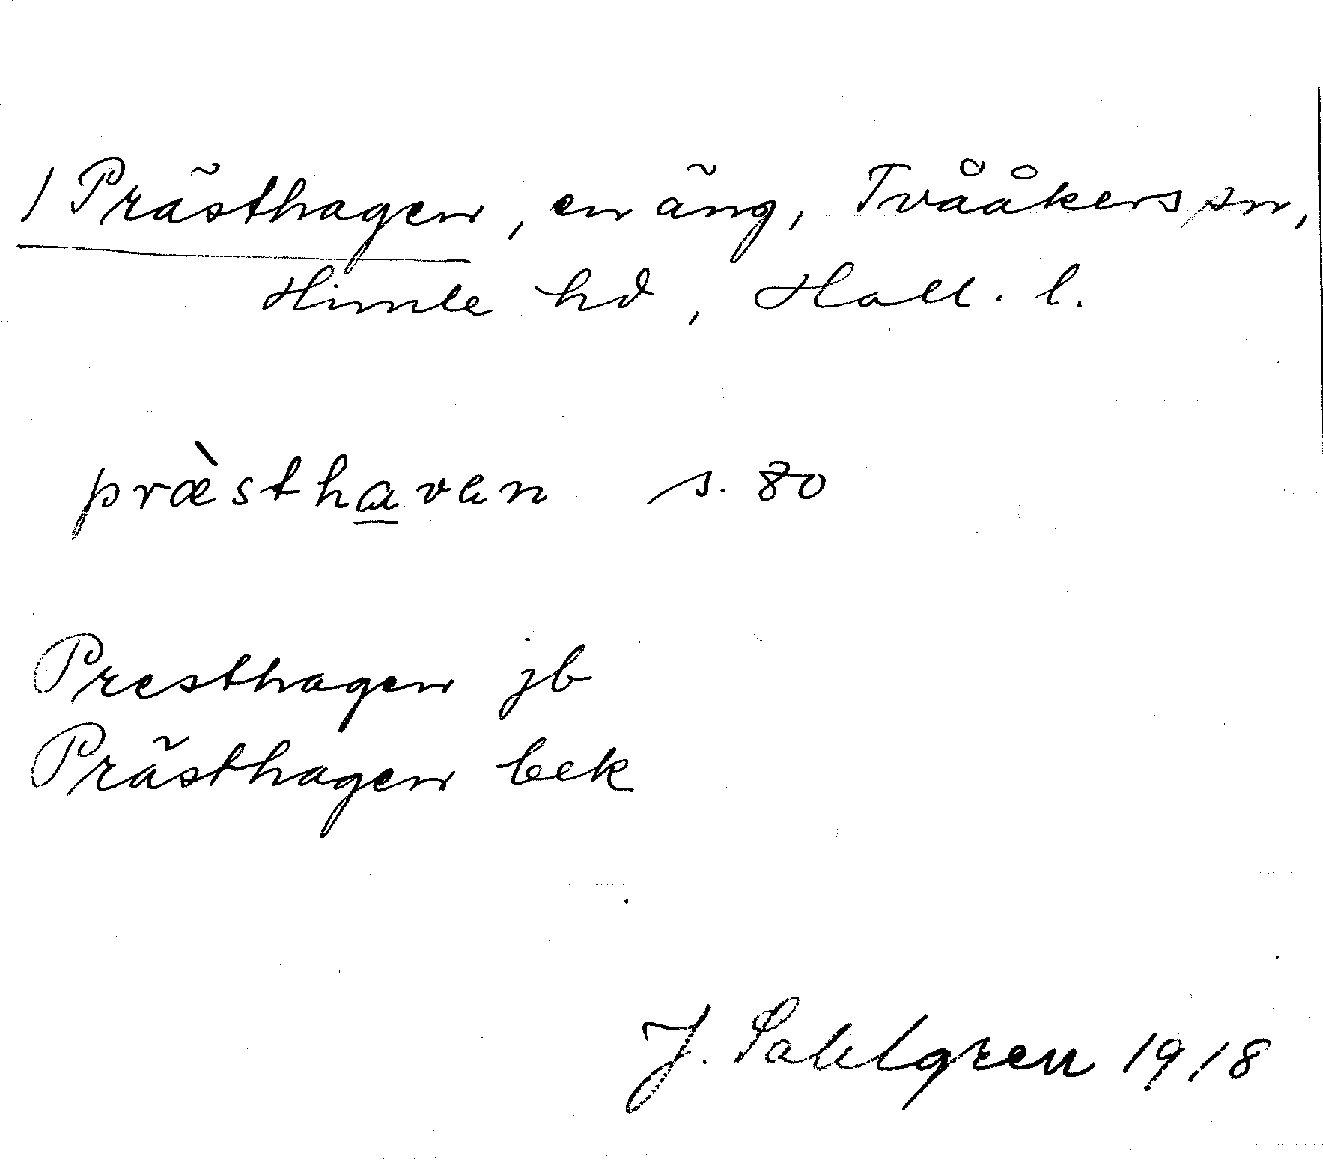 1 Prästhagen, en äng, Tvååkers sn,
Himle hd, Hall. l.
præ̀sthа̲ven s. 80
Presthagen jb
Prästhagen bek
J. Sahlgren 1918